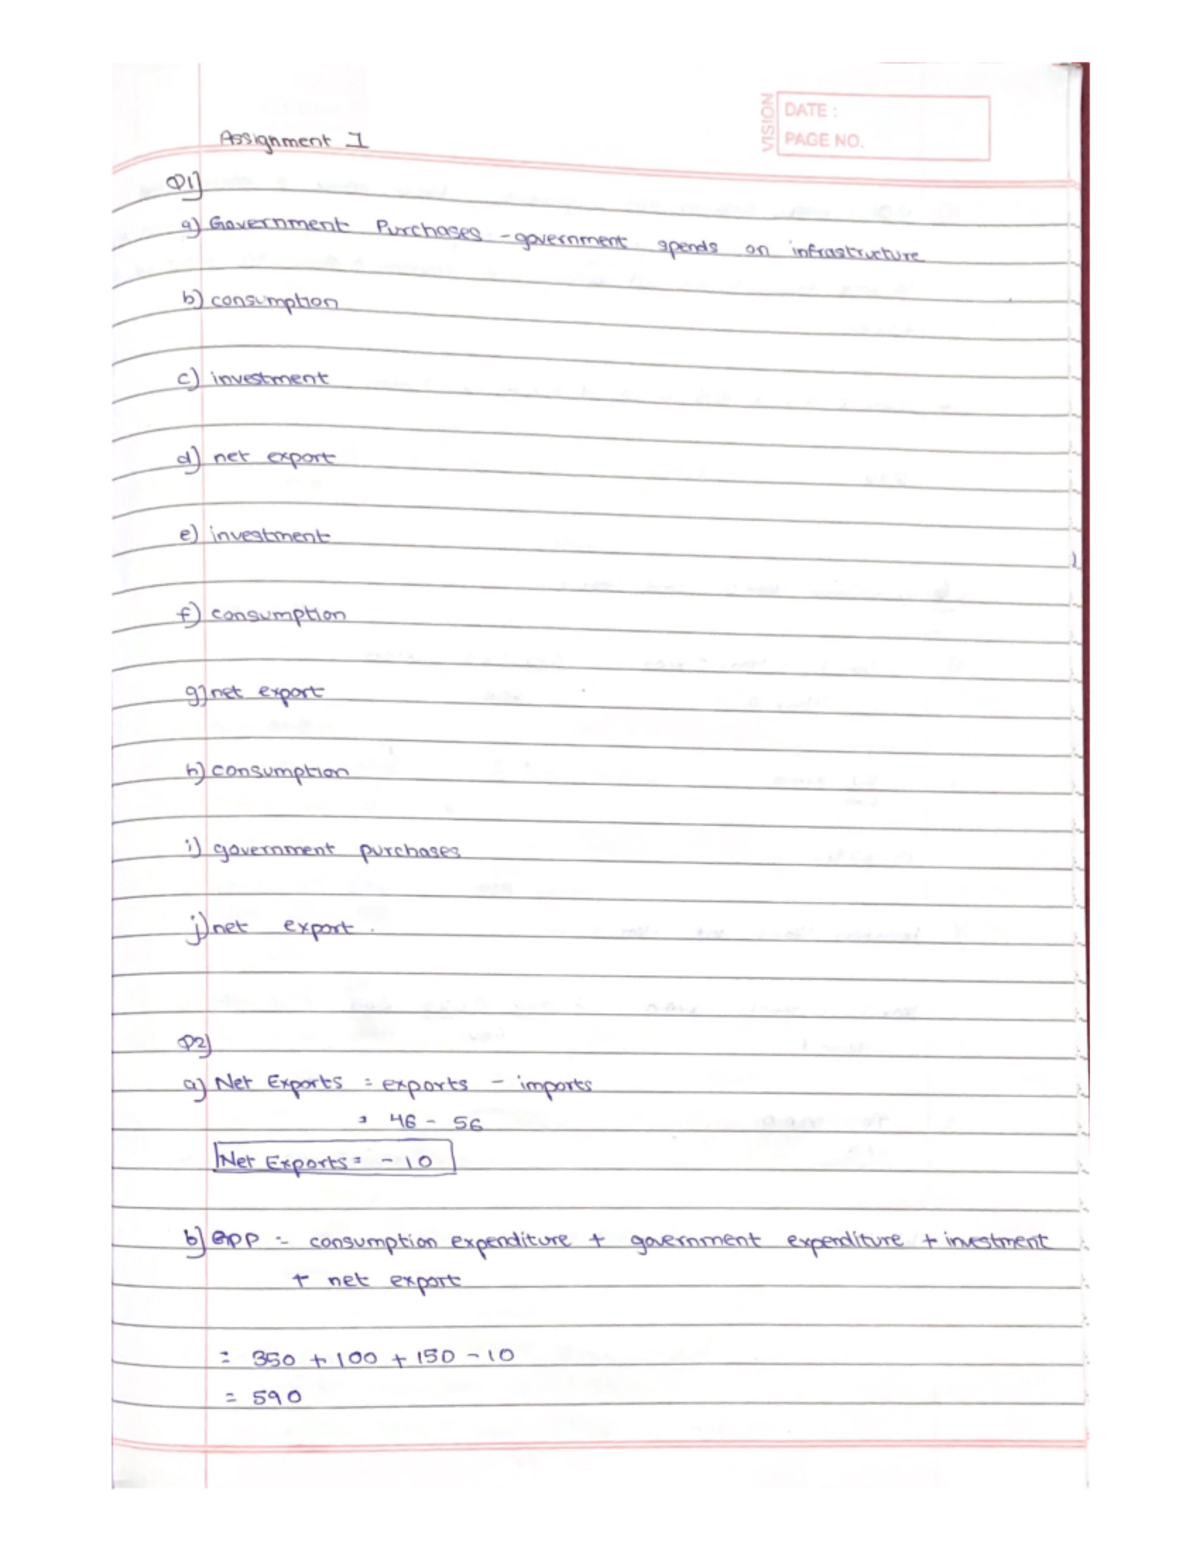 VISION
DATE :
PAGE NO.
Assignment 1
Q1]
a) Government Purchases - government spends on infrastructure
b) consumption
c) investment
d) net export
e) investment
f) consumption
g) net export
h) consumption
i) government purchases
j) net export.
Q2]
a) Net Exports = exports - imports
= 46 - 56
Net Exports = - 10
b) GDP = consumption expenditure + government expenditure + investment
+ net export
= 350 + 100 + 150 - 10
= 590